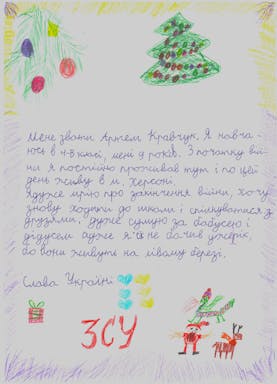 Мене звати Артем Кравчук. Я навча-
юсь в 4-В класі, мені 9 років. З початку вій-
ни я постійно проживав тут і по цей
день живу в м. Херсоні.
Я дуже мрію про закінчення війни, хочу
знову ходити до школи і спілкуватися з
друзями, дуже сумую за бабусею і
дідусем адже я їх не бачив уже рік,
бо вони живуть на лівому березі.
Слава Україні
ЗСУ